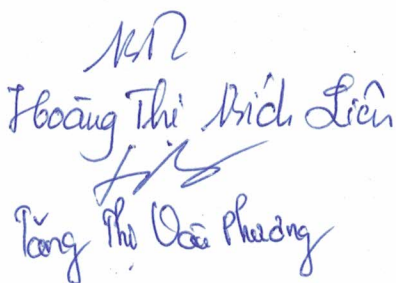 Hoàng Thị Bích Liên
Tăng Thị Vân Phương